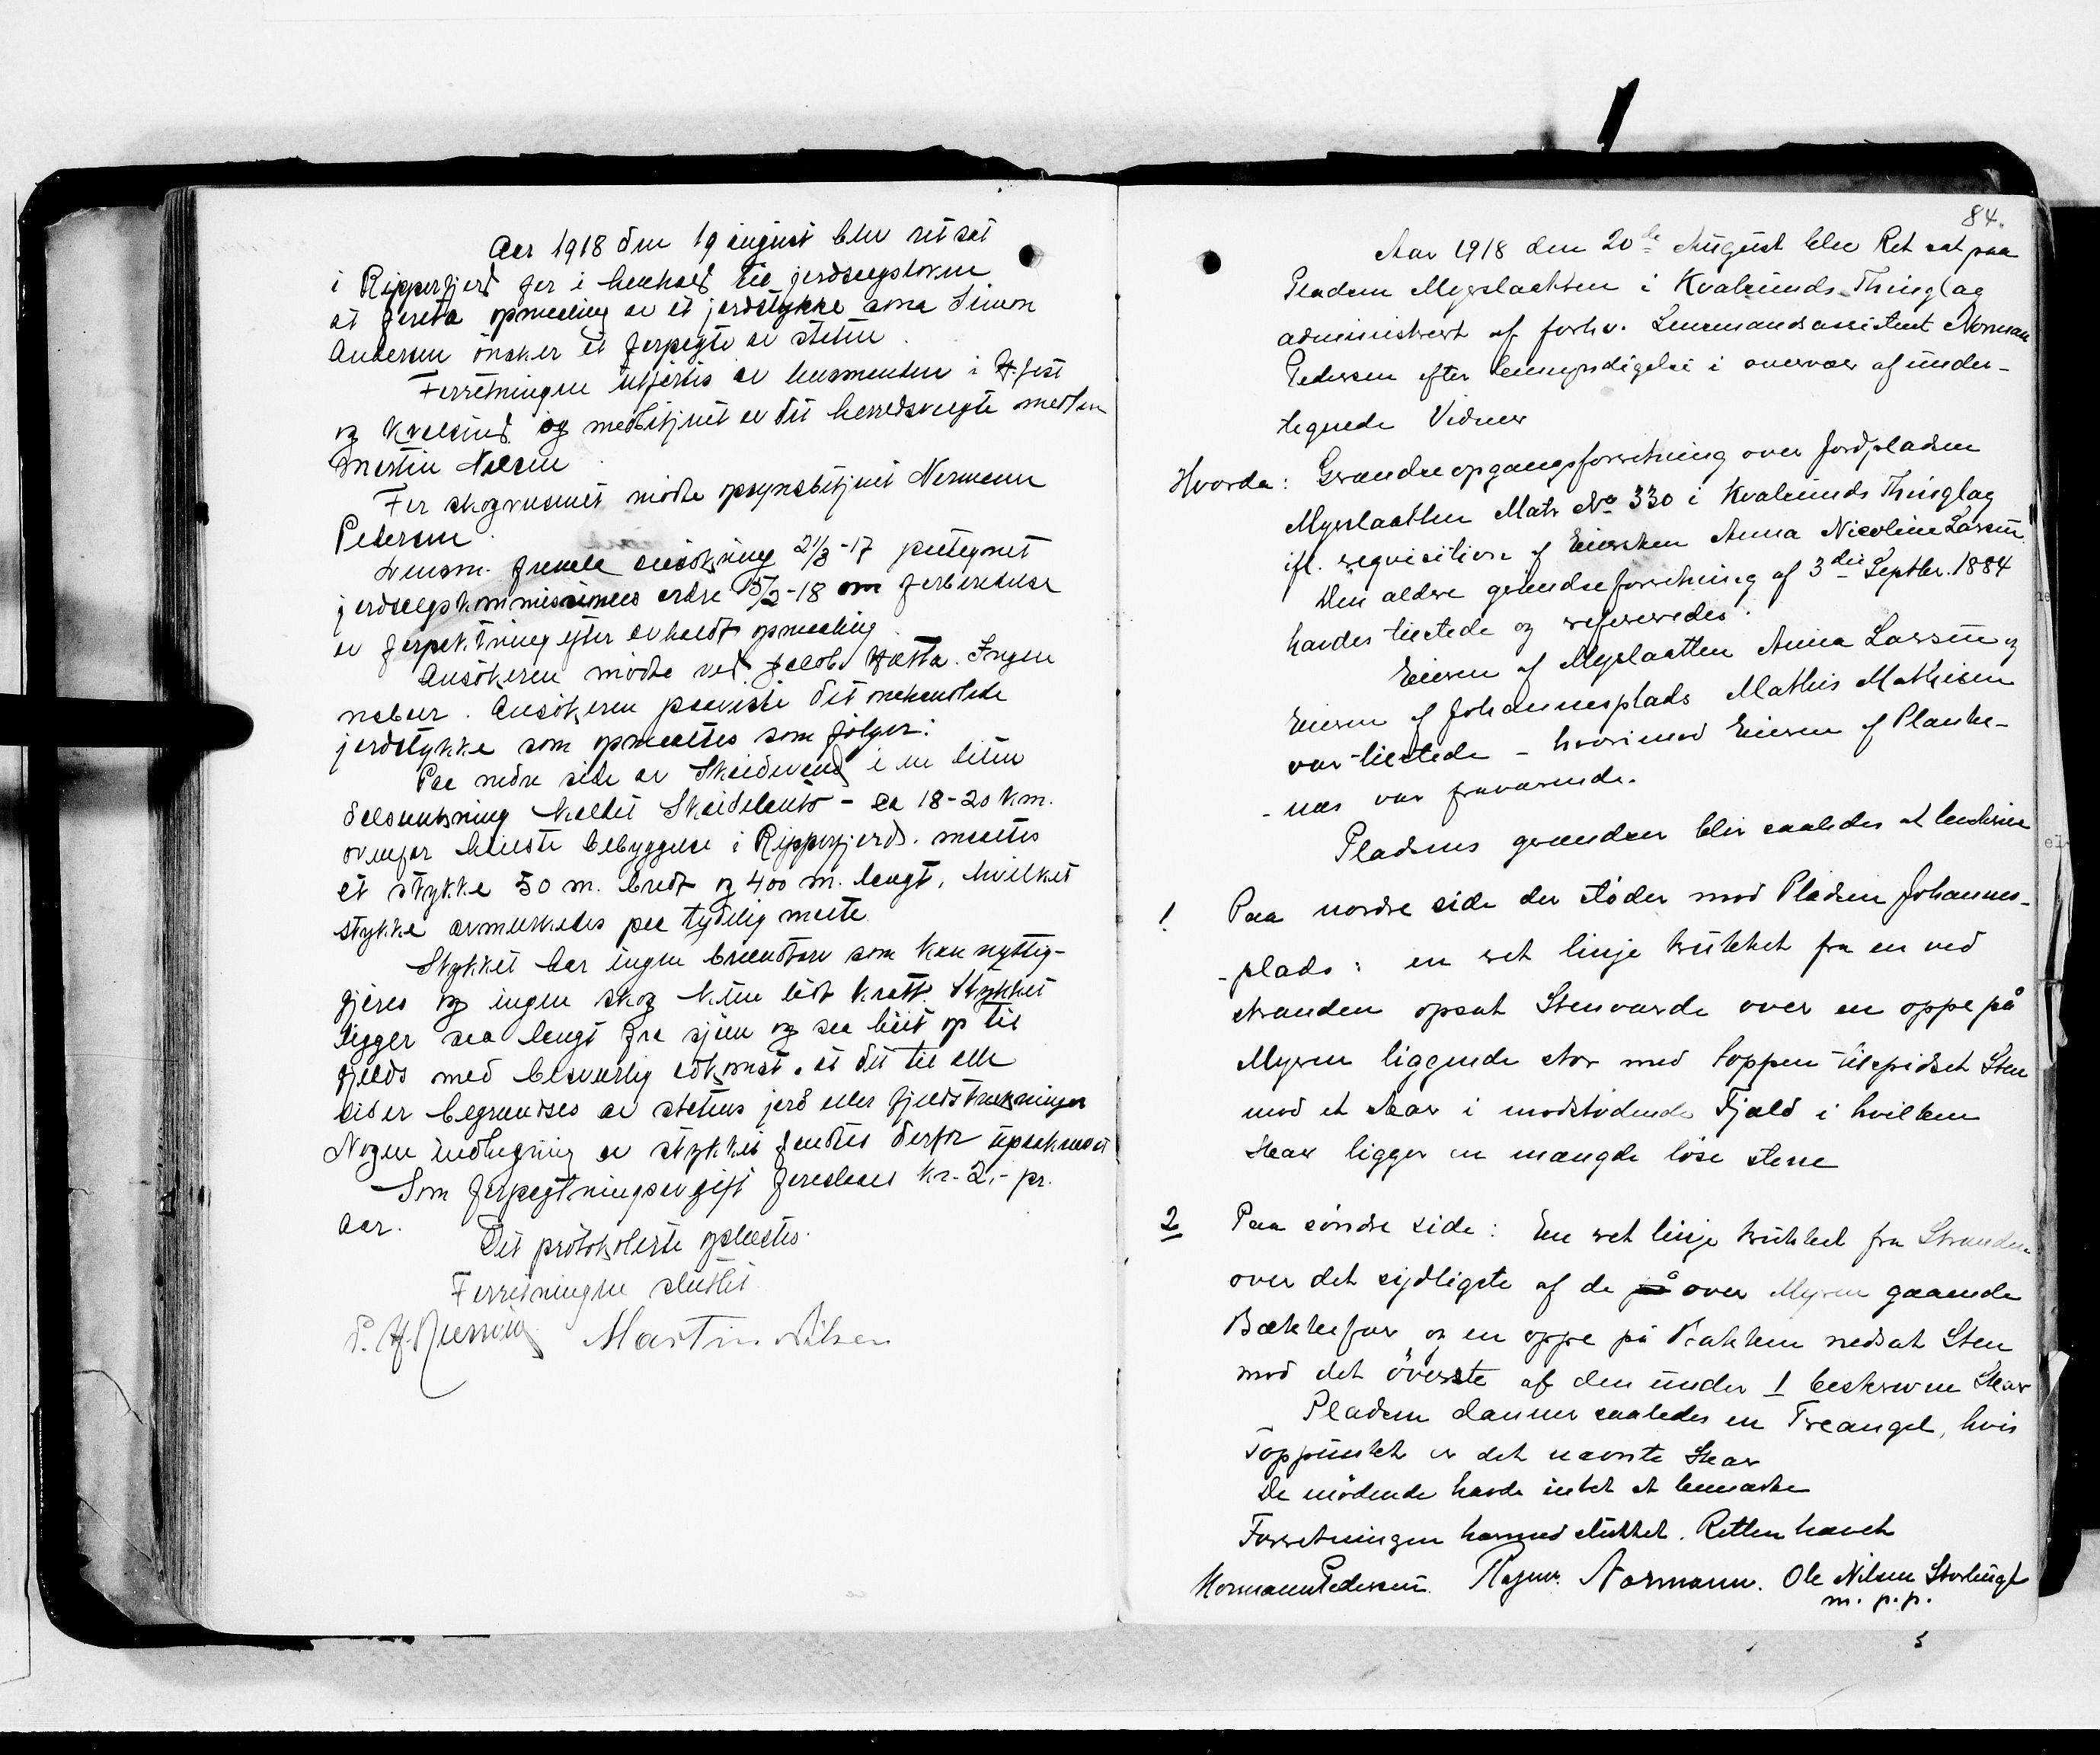 Aar 1918 den 19 august blev ret sat
i Ripperfjord for i henhold til jordsalgsloven
at foreta opmaaling av et jordstykke som Simon
Andersen önsker at forpagte av staten.
Forretningen utförtes av lensmanden i H.fest
og Kvalsund og medbetjent av det herredsvalgte medlem
Martin Nilsen
For skogvæsenet mödte opsynsbetjent Normann
Petersen.
Lensm. fremla ansökning 21/3-17 paategnet
jordsalgskommissionens ordre 15/2-18 om forberedelse
av forpaktning efter avholdt opmaaling.
Ansökeren mödte ved Jacob Hætta. Ingen
naboer. Ansökeren paaviste det omhandlede
jordstykke som opmaaltes som fölger:
Paa nedre side av Skaidevand i en liten
dalsænkning kaldet - ca 18-20 km.
ovenfor bebyggelse i Ripperfjord. maaltes
et stykke 50 m. bredt og 400 m. langt, hvilket
stykke avmerkedes paa tydelig maate.
Stykket har ingen brændtorv som kan nyttig-
gjöres og ingen skog kun litt kratt. Stykket
ligger saa langt fra sjöen og saa höit op til
fjelds med besværlig adkomst. at det til alle
sider begrændses av statens jord eller fjeldstrækninger
Nogen indhegning av stykket fandtes derfor upaakrævet
Som forpagtningsavgift foreslaaes kr. 2,- pr.
aar.
Det protokolerte oplæstes.
Forretningen sluttet.
Martin Nilsen
84.
Aar 1918 den 20de August blev Ret sat paa
Pladsen Myrslaatten i Kvalsunds Thinglag
administrert af forhv. Lensmandsassistent Norman
Pedersen efter bemyndigelse i overvær af under-
tegnede Vidner
Hvorda: Grændseopgangsforretning over Jordpladsen
Myrslaatten Matr No 330 i Kvalsunds Thinglag
ifl. requisition af Eiersken Anna Nicoline Larsen.
Den ældre grændseforretning af 3die Septbr. 1884
havdes tilstede og refereredes.
Eieren af Myrslaatten Anna Larsen og
Eieren af Johannesplads Mathis Mathisen
var tilstede - hvorimod Eieren af Planke-
- næs var fraværende.
Pladsens grændser blir saaledes at beskrive
1 Paa nordre side der støder mod Pladsen Johannes-
- plads: en ret linje trukket fra en ved
stranden opsat Stenvarde over en oppe på
Myren liggende stor med toppen tilspidset Sten
mod et skar i modstødende Fjeld i hvilken
Skar ligger en mængde löse stene
2 Paa söndre side: En ret linje trukket fra Stranden
over det sydligste af de på over Myren gaaende
Bækkefar og en oppe på Bakken nedsat Sten
mod det överste af den under 1 beskrevne Skar
Pladsen danner saaledes en Treangel, hvis
Toppunkt er det nævnte Skar
De mödende havde intet at bemærke
Forretningen hermed sluttet. Retten hævet
Normann Pedersen. Ragnv. Normann. Ole Nilsen
m. p. p.